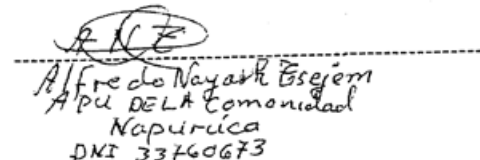 A N E
Alfredo Nayash Esejem
APU DE LA Comonidad
Napuruca
DNI 33760673